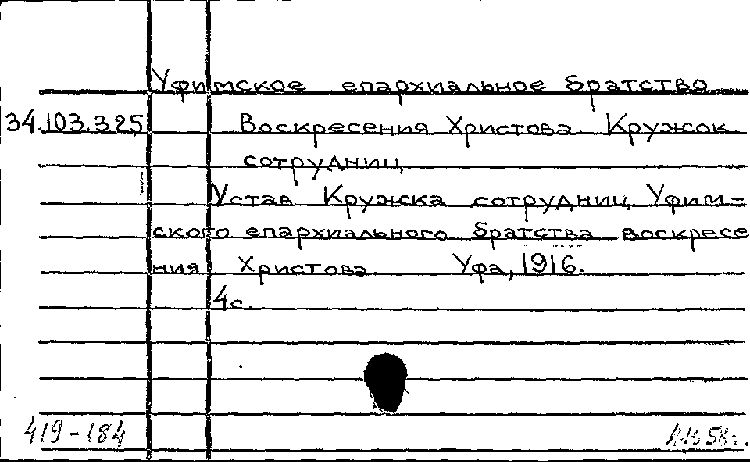 Уфимское епархиальное братство
34.103.325 Воскресения Христова. Кружок
сотрудниц.
Устав Кружка сотрудниц Уфим=
ского епархиального братства воскресе
ния Христова. Уфа, 1916.
4с.
419-184